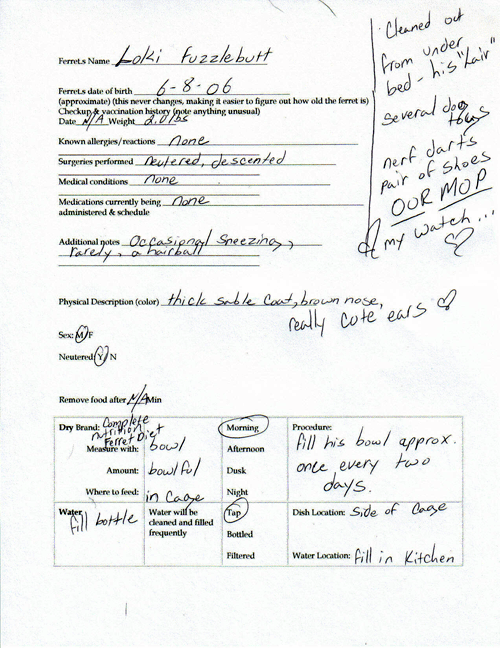 Ferret.s Name Loki Fuzzlebutt
Ferret.s date of birth 6-8-06
(approximate) (this never changes, making it easier to figure out how old the ferret is)
Checkup & vaccination history (note anything unusual)
Date N/A Weight 2.0 lbs
Known allergies/reactions none
Surgeries performed neutered, descented
Medical conditions none
Medications currently being none
administered & schedule
Additional notes Occasional Sneezing,
rarely, a hairball
Cleaned out
from under
bed - his "Lair"
several dog
toys
nerf darts
pair of shoes
OUR MOP
& my watch...
Physical Description (color) thick sable coat, brown nose,
really cute ears
Sex: M/F
Neutered: Y/N
Remove food after N/A Min
Dry Brand: Complete
nutrition
Ferret Diet
Measure with: bowl
Amount: bowlful
Where to feed: in Cage
Morning
Afternoon
Dusk
Night
Procedure:
fill his bowl approx.
once every two
days.
Water
fill bottle
Water will be
cleaned and filled
frequently
Tap
Bottled
Filtered
Dish Location: Side of Cage
Water Location: fill in Kitchen